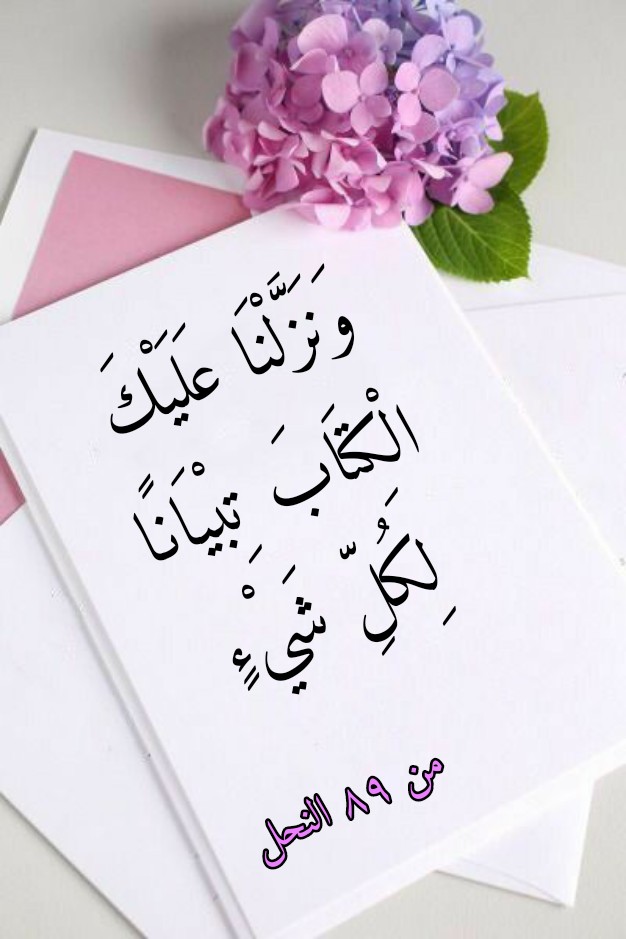 وَنَزَّلْنَا عَلَيْكَ
الْكِتَابَ تِبْيَانًا
لِكُلِّ شَيْءٍ
من ٨٩ النحل